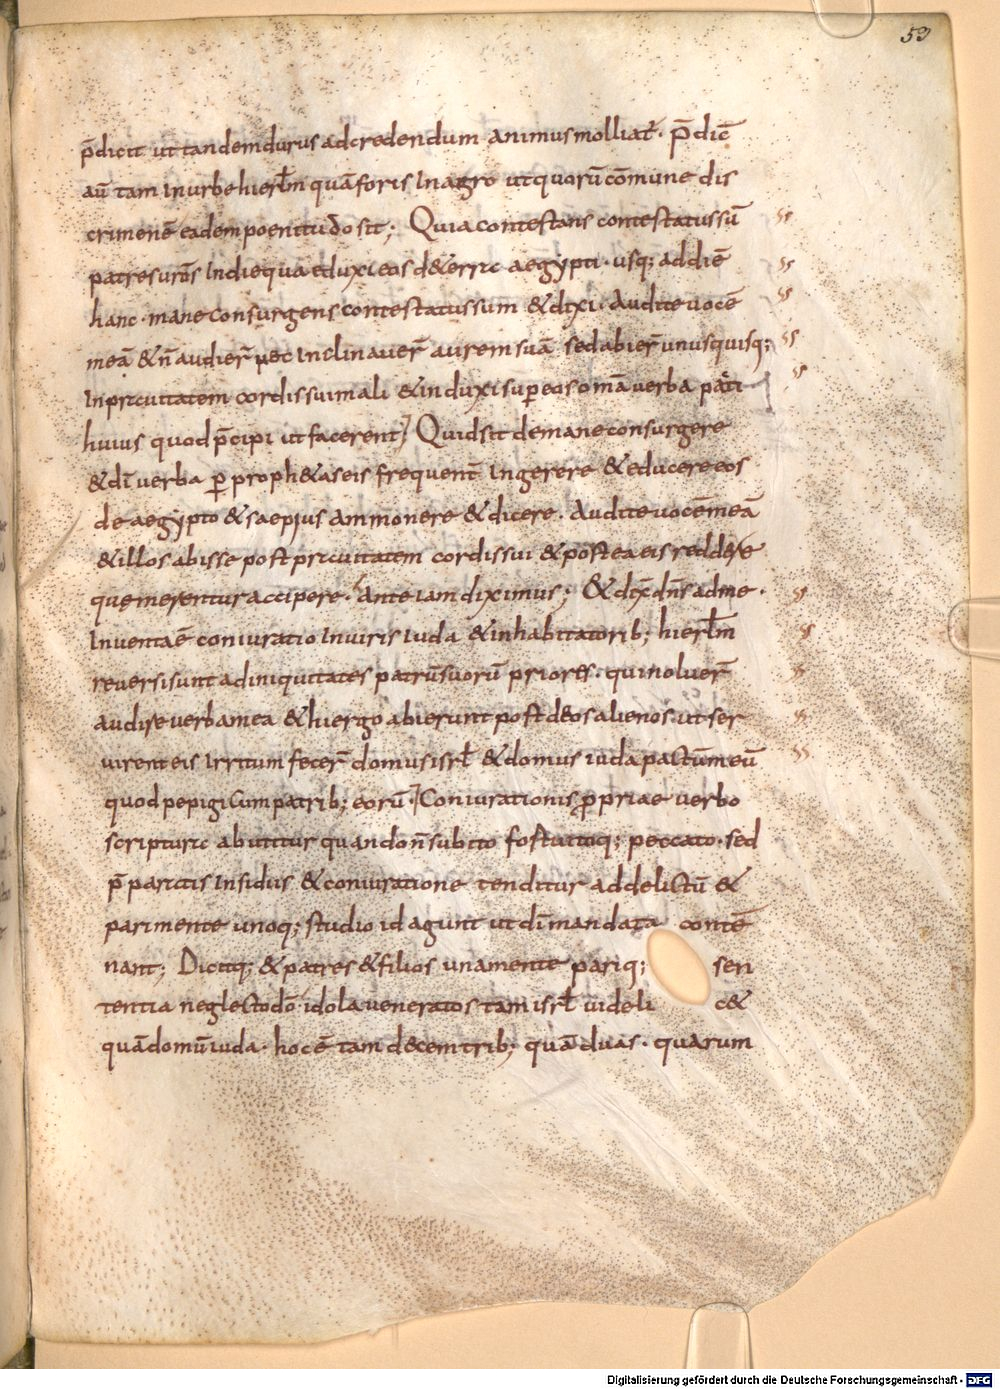 59
p̄dicit ut tandem durus ad credendum animus molliat̄. p̄dic̄
aū tam in urbe hierl̄m quā foris in agro ut quorū cōmune dis
crimen ē eadem poenitudo sit; Quia contestans contestatus sū
patres urōs in die qua eduxi eos de terra aegypti. usq; ad diē
hanc. mane consurgens contestatus sum & dixi. Audite uocē
meā & n̄ audier̄ nec inclinauer̄ aurem suā sed abier̄ unusquisq;
in prauitatem cordis sui mali & induxi super eos om̄a uerba pacti
huius quod p̄cipi ut facerent; Quid sit de mane consurgere
& dī uerba ꝑ proph&as eis frequent̄ ingerere & educere eos
de aegypto & saepius ammonere & dicere. Audite uocē meā
& illos abisse post prauitatem cordis sui & postea eis reddere
que merentur accipere. Ante iam diximus; & dix̄ dn̄s ad me.
Inuenta ē coniuratio in uiris iuda & in habitatorib; hierl̄m
reuersi sunt ad iniquitates patrū suorū priores. qui noluer̄
audire uerba mea & hi ergo abierunt post deos alienos ut ser
uirent eis irritum fecer̄ domus isrl̄ & domus iuda pactūm eū
quod pepigi cum patrib; eorū. Coniurationis propriae uerbo
scriptura abutitur quando n̄ subito fostuitoq; peccato. sed
p̄paratis insidiis & coniuratione tenditur ad delictū &
pari mente unoq; studio id agunt ut dī mandata contē
nant; Dicitq; & patres & filios una mente pariq; sen
tentia neglecto dō idola ueneratos tam isrl̄ uideli c&
quā domū iuda. hoc ē tam decem trib; quā duas. quarum
Digitalisierung gefördert durch die Deutsche Forschungsgemeinschaft - DFG